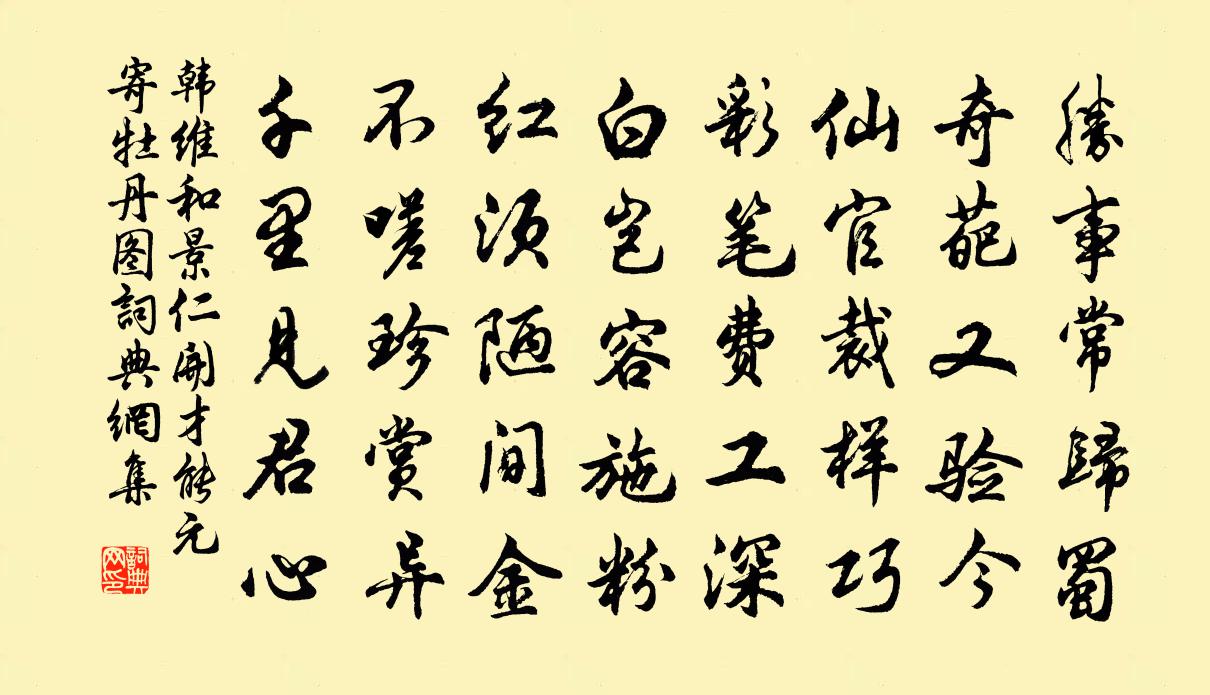 勝事常歸蜀
奇葩又验今
仙官裁样巧
彩笔费工深
白岂容施粉
红须陋间金
不嗟珍赏异
千里見君心
韩维和景仁開才能元
寄牡丹图詞典網集
詞典网印